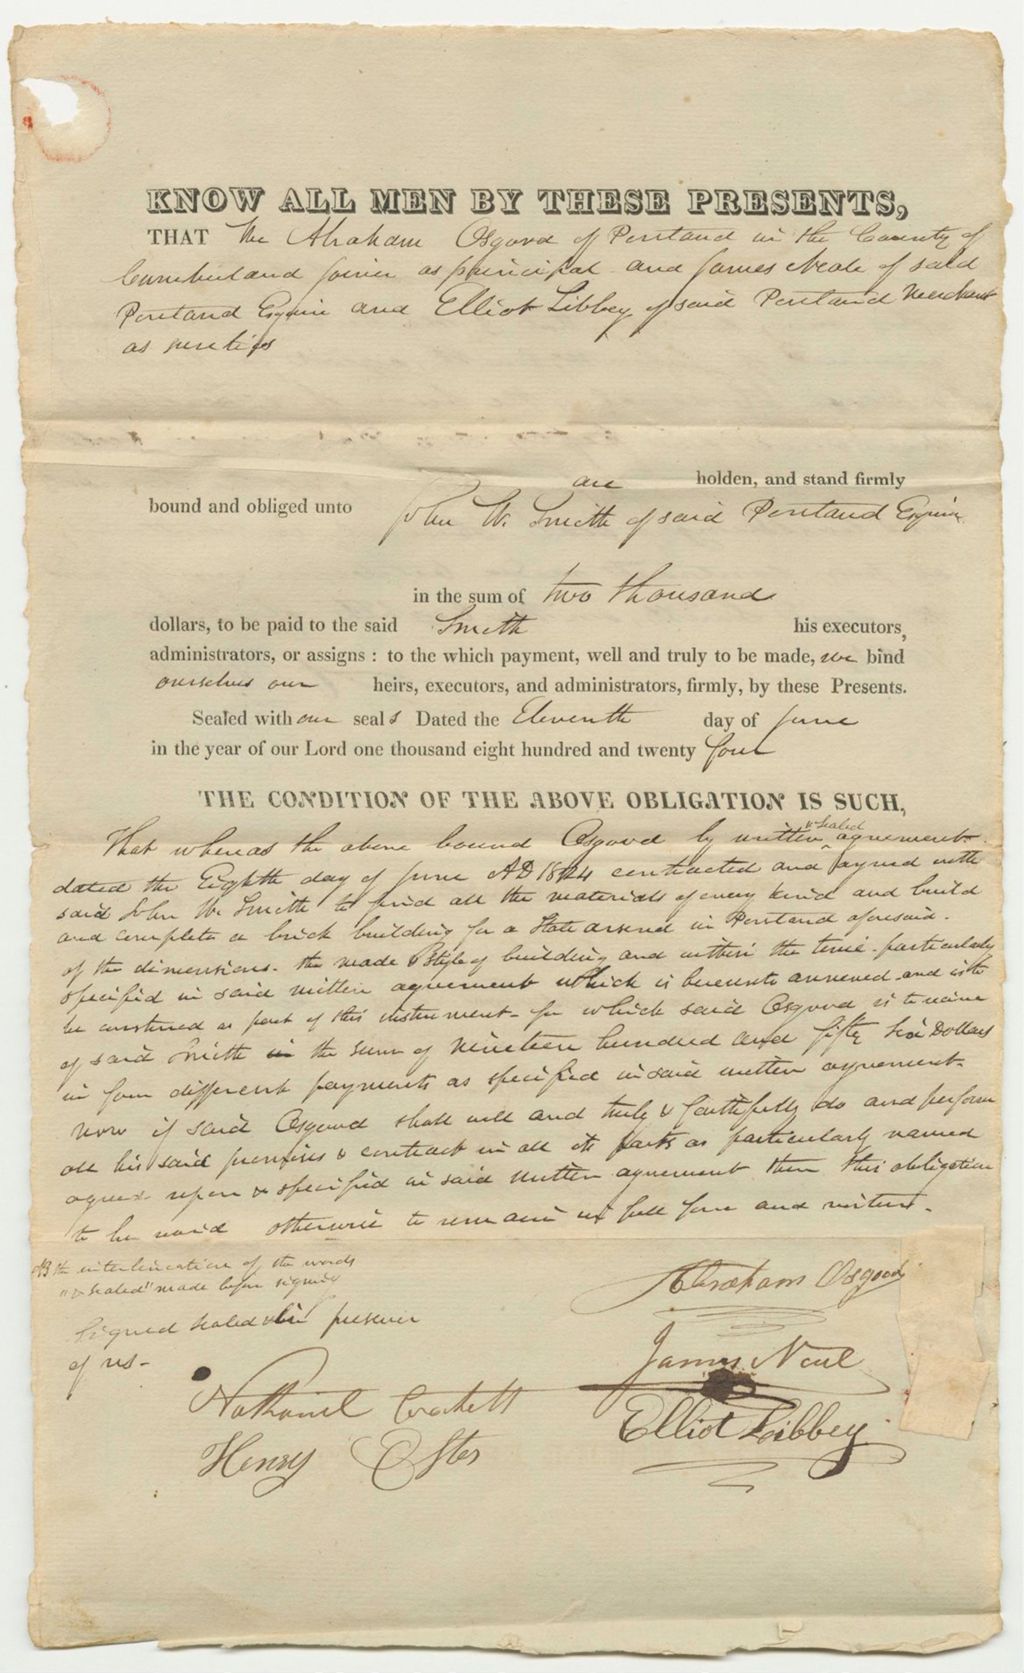 KNOW ALL MEN BY THESE PRESENTS,
THAT We Abraham Osgood of Portland in the County of
Cumberland Joiner as principal and James Neale of said
Portland Esquire and Elliot Libbey of said Portland Merchant
as sureties
are holden, and stand firmly
bound and obliged unto John W. Smith of said Portland Esquire
in the sum of two thousand
dollars, to be paid to the said Smith his executors,
administrators, or assigns : to the which payment, well and truly to be made, we bind
ourselves our heirs, executors, and administrators, firmly, by these Presents.
Sealed with our seals Dated the Eleventh day of June
in the year of our Lord one thousand eight hundred and twenty four
THE CONDITION OF THE ABOVE OBLIGATION IS SUCH,
& sealed
That whereas the above bound Osgood by written agreement
dated the Eighth day of June AD 1824 contracted and agreed with
said John W. Smith to find all the materials of every kind and build
and complete a brick building for a State arsenal in Portland aforesaid.
of the dimensions. the made & style of building and within the time particularly
specified in said written agreement which is hereunto annexed and is to
be construed as part of this instrument - for which said Osgood is to receive
of said Smith in the sum of Nineteen hundred and fifty six Dollars
in four different payments as specified in said written agreement.
Now if said Osgood shall well and truly & faithfully do and perform
all his said promises & contract in all its parts as particularly named
agreed upon & specified in said written agreement then this obligation
to be void otherwise to remain in full force and virtue.
NB the interlineation of the words
"& sealed" made before signing
Signed sealed & in presence
of us -
Nathaniel Crockett
Henry
Abraham Osgood
James Neal
Elliot Libbey